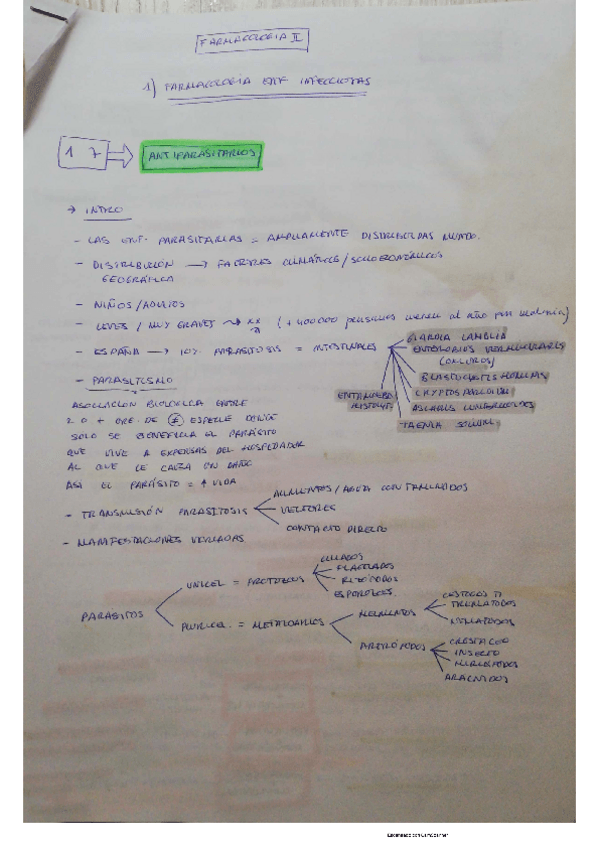 FARMACOLOGIA II
1) FARMACOLOGIA ENF INFECCIOSAS
1 7 ANTIPARASITARIOS
→ INTRO
- LAS ENF. PARASITARIAS = AMPLIAMENTE DISTRIBUIDAS MUNDO.
- DISTRIBUCIÓN → FACTORES CLIMÁTICOS/SOCIOECONÓMICOS
GEOGRÁFICA
- NIÑOS/ADULTOS
- LEVES / MUY GRAVES (+400000 personas mueren al año por malaria)
- ESPAÑA → 10% PARASITOSIS = INTESTINALES
GIARDIA LAMBLIA
ENTEROBIUS VERMICULARIS
(OXIUROS)
BLASTOCYSTIS HOMINIS
CRYPTOSPORIDIUM
ASCARIS LUMBRICOIDES
TAENIA SOLIUM
ENTAMOEBA
HISTOLYT.
- PARASITISMO
ASOCIACIÓN BIOLÓGICA ENTRE
2 O + ORG. DE ≠ ESPECIE DONDE
SOLO SE BENEFICIA EL PARÁSITO
QUE VIVE A EXPENSAS DEL HOSPEDADOR
AL QUE LE CAUSA UN DAÑO
ASI EL PARÁSITO = ↑ VIDA
- TRANSMISIÓN PARASITOSIS
ALIMENTOS/AGUA CONTAMINADOS
VECTORES
CONTACTO DIRECTO
- MANIFESTACIONES VARIADAS
PARASITOS
UNICEL = PROTOZOOS
CILIADOS
FLAGELADOS
RIZÓPODOS
ESPOROZOOS
PLURICEL = METAZOARIOS
HELMINTOS
CESTODOS
TREMATODOS
NEMATODOS
ARTRÓPODOS
CRUSTACEO
INSECTO
MIRIÁPODOS
ARÁCNIDOS
Escaneado con CamScanner